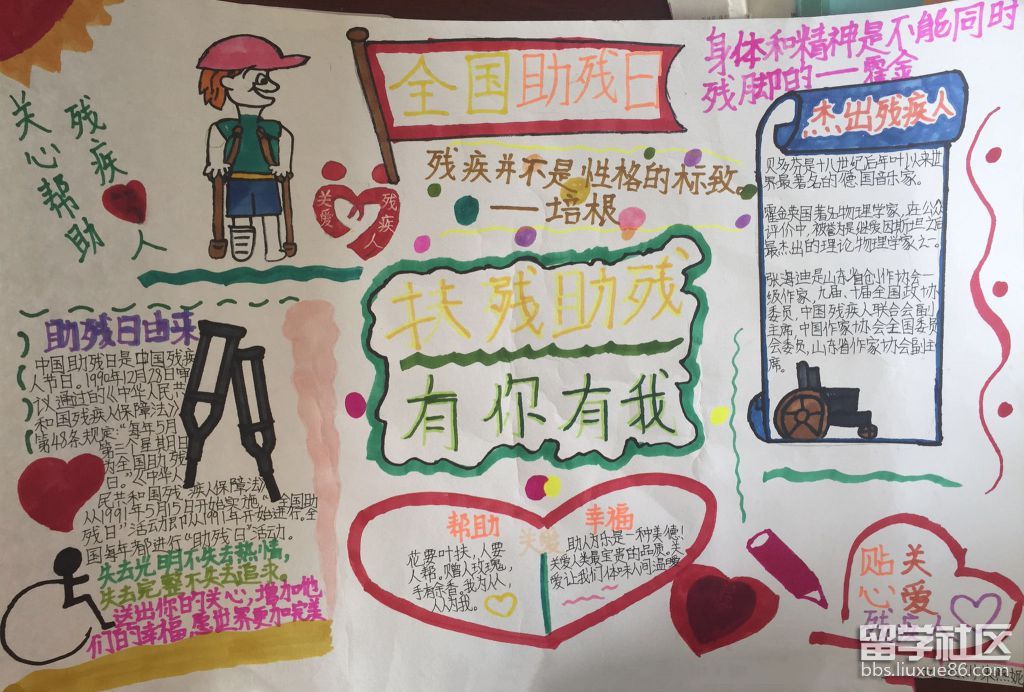 全国助残日
身体和精神是不能同时
残脚的——霍金
关心帮助
残疾
人
关爱
残疾人
残疾并不是性格的标致。
——培根
杰出残疾人
贝多芬是十八世纪后年叶以来世
界最著名的德国音乐家。
霍金英国著名物理学家,在公众
评价中,被誉为是继爱因斯坦之后
最杰出的理论物理学家之一。
张海迪是山东省创作协会一
级作家,九届、十届全国政协
委员,中国残疾人联合会副
主席,中国作家协会全国委员
会委员,山东省作家协会副主
席。
扶残助残
有你有我
助残日由来
中国助残日是中国残疾
人节日。1990年12月28日审
议通过的《中华人民共
和国残疾人保障法》
第48条规定:"每年5月
第三个星期日
为全国助残
日。"《中华人
民共和国残疾人保障法》
从1991年5月15日开始实施,"全国助
残日"活动即从1991年开始进行。全
国每年都进行"助残日"活动。
失去光明不失去热情,
失去完整不失去追求。
送出你的关心,增加他
们的幸福,愿世界更加完美
帮助
花要叶扶,人要
人帮。赠人玫瑰,
手有余香。我为人人,
人人为我。
关爱
幸福
助人为乐是一种美德!
关爱人类最宝贵的品质。关
爱让我们体味人间温暖
贴心
关爱
残疾
留学社区
bbs.liuxue86.com